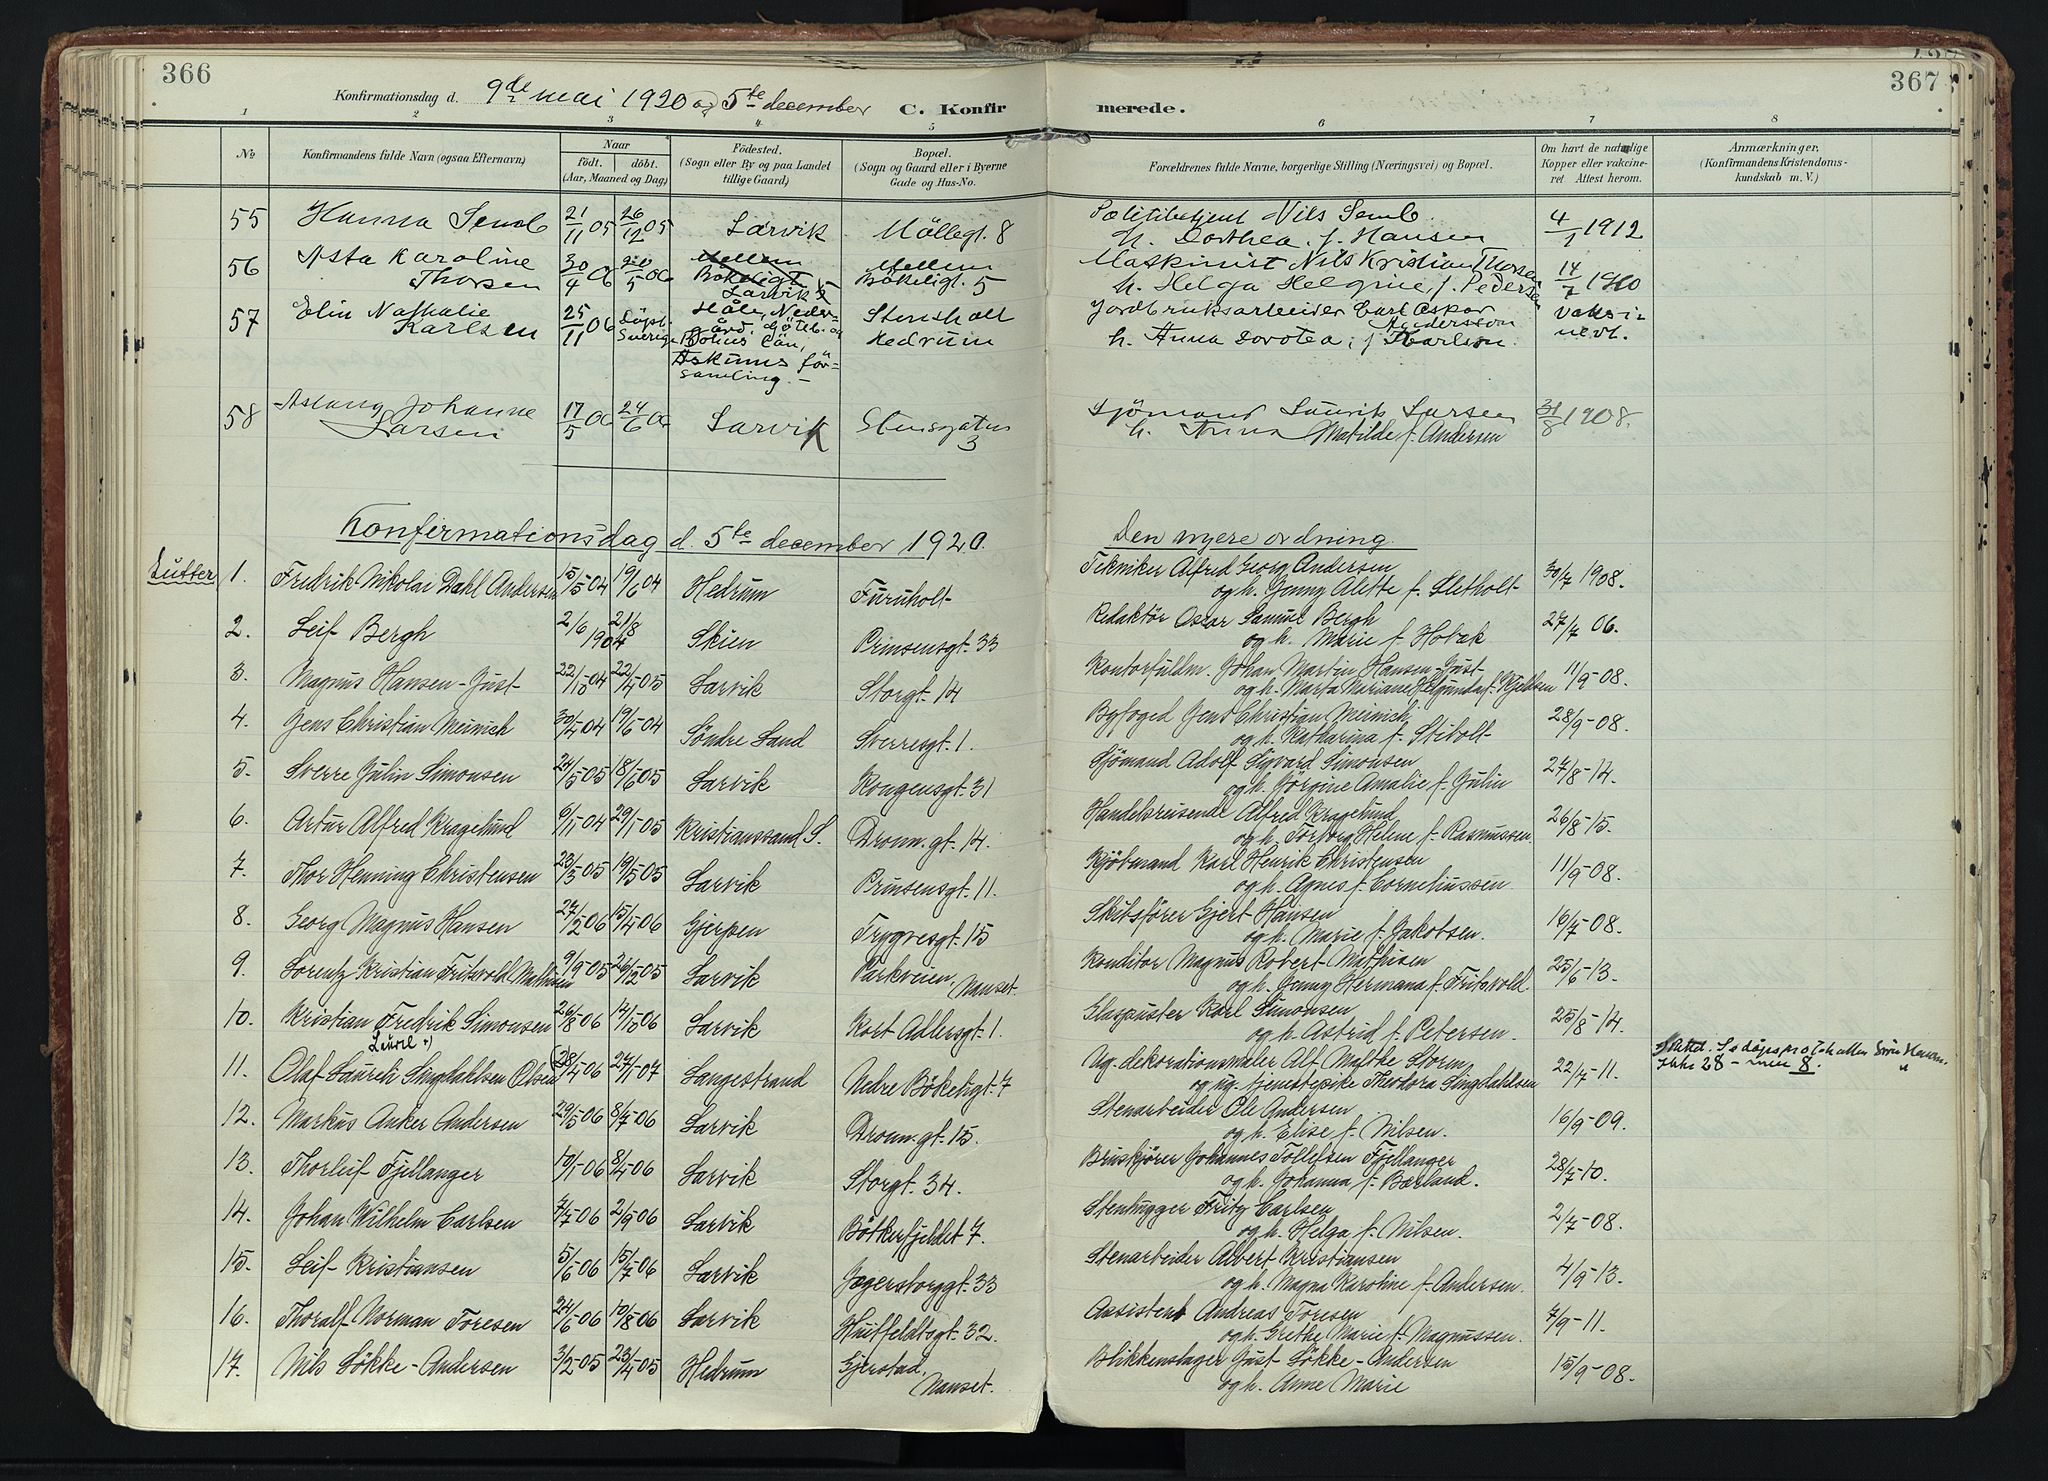 366
367
Konfirmationsdag d. 9de mai 1920 og 5te december C. Konfirmerede.
1 2 3 4 5 6 7 8
No
Konfirmandens fulde Navn (ogsaa Efternavn)
Naar
födt. döbt.
(Aar, Maaned og Dag)
Födested.
(Sogn eller By og paa Landet
tillige Gaard)
Bopæl.
(Sogn og Gaard eller i Byerne
Gade og Hus-No.
Forældrenes fulde Navne, borgerlige Stilling (Næringsvei) og Bopæl.
Om havt de naturlige
Kopper eller vakcine-
ret. Attest herom.
Anmærkninger,
(Konfirmandens Kristendoms-
kundskab m. V.)
55 Hanna Semb 21/11 05 26/12 05 Larvik Möllegt. 8 Politibetjent Nils Semb 4/1 1912
h. Dorthea f. Hansen
56 Asta Karoline 30/4 06 20/5 06 Mellem Mellem Maskinist Nils Kristian Thorsen 14/7 1910
Thorsen Bökeligt 5 Bökeligt. 5 h. Helga Helgine, f. Pedersen
Larvik
57 Elin Nathalie 25/11 06 Döpt Håle, Neder- Stensholt Jordbruksarbeider Carl Oskar Andersson vaksi-
Karlsen Sverige gård. Göteb. og Hedrum h. Anna Dorotea, f. Karlson. nert.
Bohus Län,
Askums för-
samling. -
58 Aslaug Johanne 17/5 06 24/6 06 Larvik Stensgatus Sjömand Laurits Larsen 31/8 1908.
Larsen 3 h. Anna Matilde f. Andersen
Konfirmationsdag d. 5te december 1920. Den nyere ordning.
Gutter
1. Fredrik Nikolai Dahl Andersen 15/5-04 19/6 04 Hedrum Furuholt Tekniker Alfred Georg Andersen 30/7 1908.
og h. Jenny Alette f. Sletholt
2. Leif Bergh 2/6 21/8 1904 Skien Prinsensgt. 33 Redaktør Oscar Samuel Bergh 27/7 06.
og h. Marie f. Hobæk
3. Magnus Hansen-Just 22/10-04 22/4-05 Larvik Storgt. 14 Kontorfuldm. Johan Martin Hansen-Just 11/9-08.
og h. Marta Mariane Helgunda f. Kjeldsen
4. Jens Christian Meinich 30/4-04 19/6-04 Söndre Land Sverresgt. 1. Byfoged Jens Christian Meinich 28/9-08.
og h. Katharina f. Stibolt
5. Sverre Julin Simonsen 24/5-05 18/6-05 Larvik Kongensgt. 31 Sjömand Adolf Sigvard Simonsen 27/8-14.
og h. Jörgine Amalie f. Julin
6. Artur Alfred Kragelund 6/11-04 29/1-05 Kristianssand S. Dronn. gt. 14. Handelsreisende Alfred Kragelund 26/8-15.
og h. Torborg Helene f. Rasmussen.
7. Thor Henning Christensen 23/3-05 19/5-05 Larvik Prinsensgt. 11. Kjöbmand Karl Henrik Christensen 11/9-08.
og h. Agnes f. Corneliussen
8. Georg Magnus Hansen 27/2-06 15/4-06 Gjerpen Trygvesgt. 15 Skibsfører Gjert Hansen 16/7-08.
og h. Marie f. Jakobsen.
9. Lorentz Kristian Fritzvold Mathisen 9/9-05 26/12-05 Larvik Parkveien, Nanset. Konditor Magnus Robert Mathisen 25/6-13.
og h. Jenny Hermana f. Fritzvold.
10. Kristian Fredrik Simonsen 26/8-06 14/10-06 Larvik Kort Adlersgt. 1. Glaspuster Karl Simonsen 25/8-14.
og h. Astrid f. Petersen.
11. Olaf Lauretz Singdahlsen Olsen 28/4-06 27/1-07 Langestrand Nedre Bökeligt. 7 Ug. dekorationsmaler Alf Malthe Storm 22/7-11.
og ug. tjenestepike Theodora Singdahlsen
Ikke 28 - men 8.
12. Markus Anker Andersen 29/5-06 8/7-06 Larvik Dronn. gt. 15. Stenarbeider Ole Andersen 16/9-09.
og h. Elise f. Nilsen.
13. Thorleif Fjellanger 10/1-06 8/4-06 Larvik Storgt. 34. Bruskjører Johannes Tollefsen Fjellanger 28/7-10.
og h. Johanna f. Bærland.
14. Johan Wilhelm Carlsen 7/7-06 2/9-06 Larvik Bötkerfjeldet 7. Stenhugger Fritz Carlsen 2/7-08.
og h. Helga f. Nilsen.
15. Leif Kristiansen 5/6-06 15/7-06 Larvik Jegersborggt. 33 Stenarbeider Albert Kristiansen 4/9-13.
og h. Magna Karoline f. Andersen.
16. Thoralf Norman Toresen 24/6-06 10/8-06 Larvik Huitfeldtsgt. 32. Assistent Andreas Toresen 7/9-11.
og h. Grethe Marie f. Magnussen.
17. Nils Lökke-Andersen 3/2-05 23/4-05 Hedrum Gjerstad, Nanset. Blikkenslager Just Lökke-Andersen 15/9-08.
og h. Anne Marie